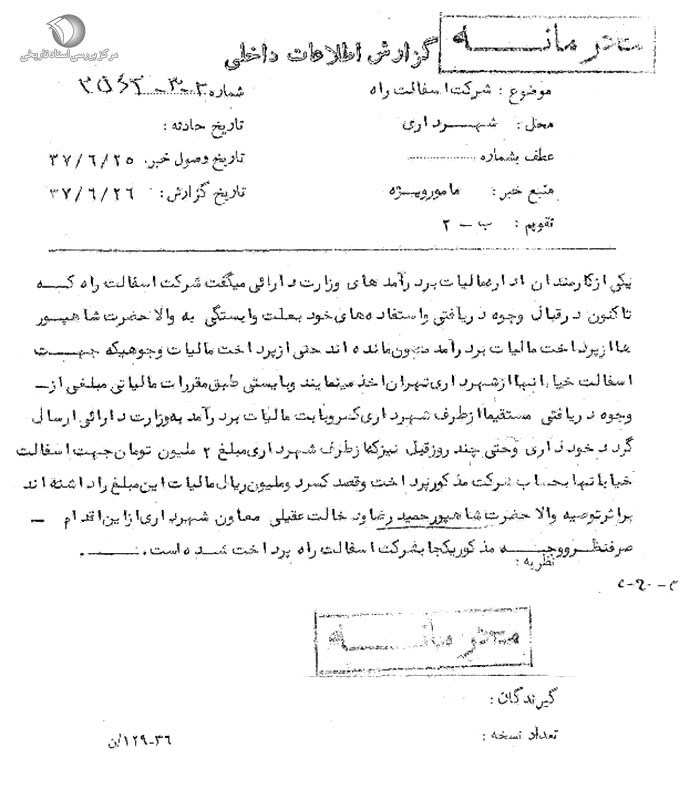 مرکز بررسی اسناد تاریخی
محرمانه
گزارش اطلاعات داخلی
موضوع : شرکت اسفالت راه
شماره
محل : شهرداری
تاریخ حادثه :
عطف بشماره
تاریخ وصول خبر: ۳۷/۶/۲۵
منبع خبر : مامورویژه
تاریخ گزارش: ۳۷/۶/۲۶
تقویم : ب - ۲
یکی ازکارمندان اداره مالیات بردرآمدهای وزارت دارائی میگفت شرکت اسفالت راه که
تاکنون درقبال وجوه دریافتی واستفاده های خود بعلت وابستگی به والا حضرت شاهپور
ازپرداخت مالیات بردرآمد مانده اند حتی ازپرداخت مالیات وجوهیکه جهت
اسفالت خیابانها ازشهرداری تهران اخذ مینمایند وبایستی طبق مقررات مالیاتی مبلغی از
وجوه دریافتی مستقیما ازطرف شهرداری کسروبابت مالیات بردرآمد به وزارت دارائی ارسال
گردد خودداری وحتی چند روزقبل نیزکه ازطرف شهرداری مبلغ ۲ ملیون تومان جهت اسفالت
خیابانها بحساب شرکت مذکورپرداخت وقصد کسر دوملیون ریال مالیات این مبلغ راداشته اند
براثرتوصیه والا حضرت شاهپورحمید رضا ودخالت عقیلی معاون شهرداری ازاین اقدام -
صرفنظرووجه مذکوریکجا بشرکت اسفالت راه پرداخت شده است .
نظریه :
محرمانه
گیرندگان :
تعداد نسخه :
۳۶-۱۲۹/ن